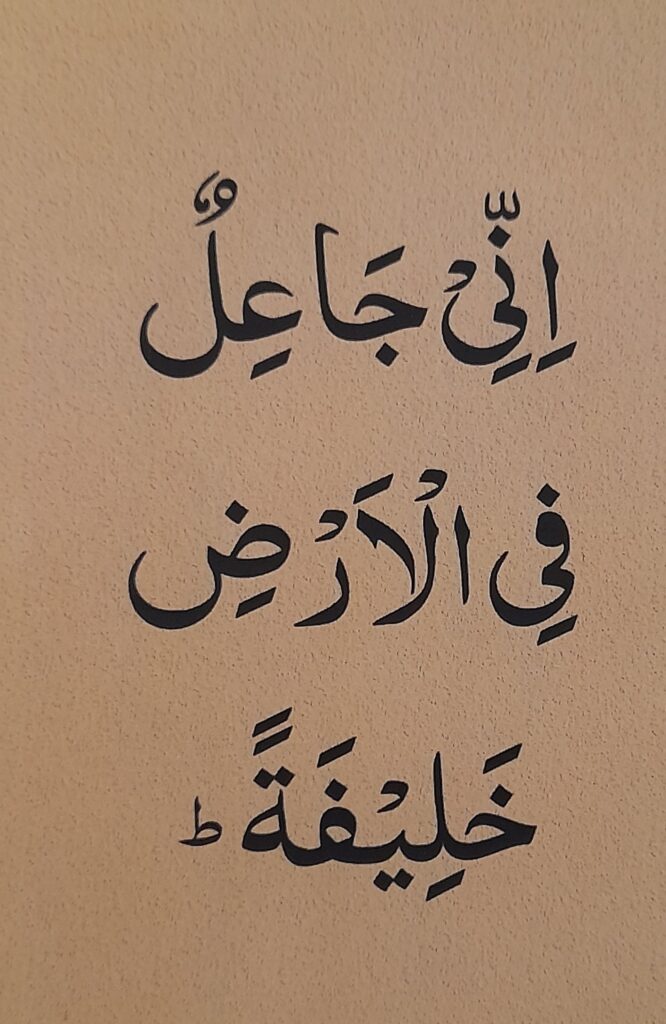 اِنِّيْ جَاعِلٌ
فِي الْاَرْضِ
خَلِيْفَةً ط